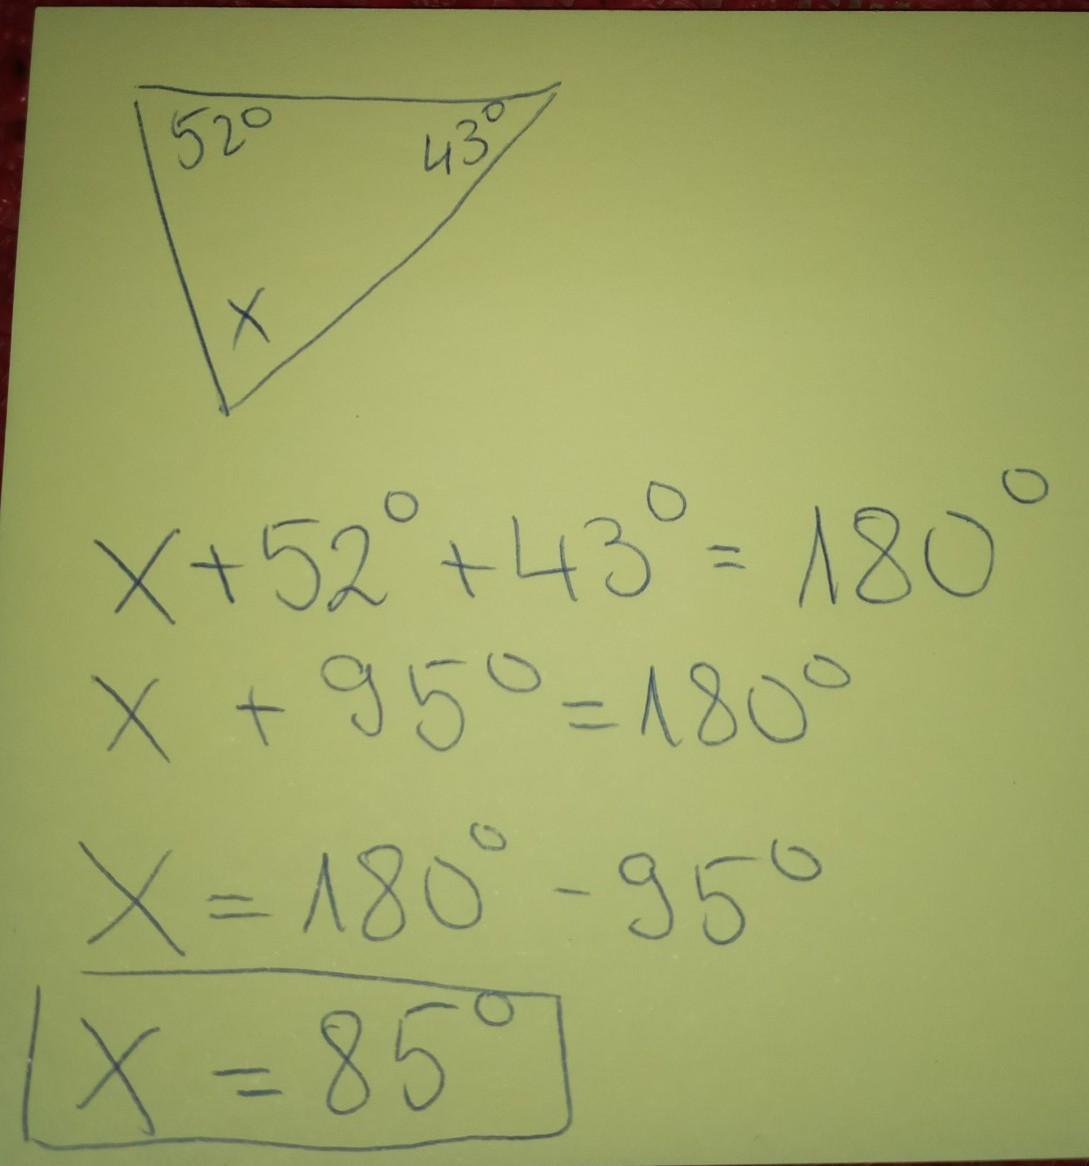 52° 43°
X
X + 52° + 43° = 180°
X + 95° = 180°
X = 180° - 95°
X = 85°